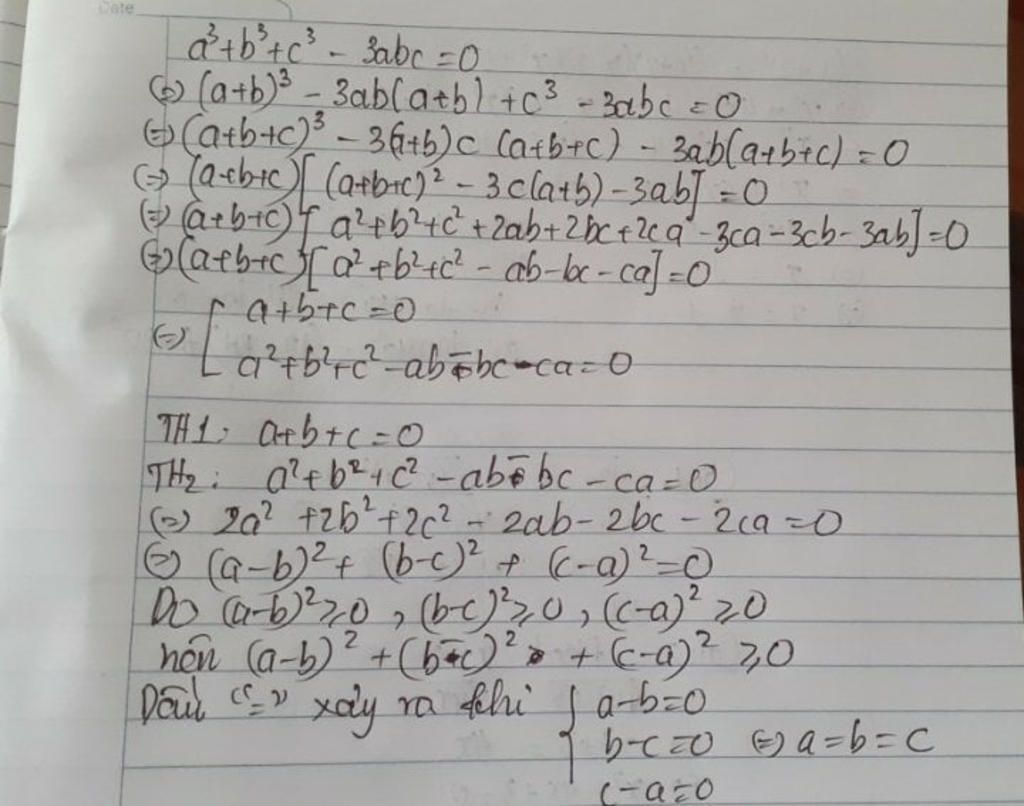 Date
a³+b³+c³ - 3abc = 0
(=) (a+b)³ - 3ab(a+b) + c³ - 3abc = 0
(=) (a+b+c)³ - 3(a+b)c (a+b+c) - 3ab(a+b+c) = 0
(=) (a+b+c)[ (a+b+c)² - 3c(a+b) - 3ab] = 0
(=) (a+b+c)[ a²+b²+c²+2ab+2bc+2ca - 3ca - 3cb - 3ab] = 0
(=) (a+b+c)[ a²+b²+c² - ab - bc - ca] = 0
(=) [ a+b+c = 0
a²+b²+c² - ab - bc - ca = 0
TH1: a+b+c = 0
TH2: a²+b²+c² - ab - bc - ca = 0
(=) 2a² + 2b² + 2c² - 2ab - 2bc - 2ca = 0
(=) (a-b)² + (b-c)² + (c-a)² = 0
Do (a-b)² ⩾ 0, (b-c)² ⩾ 0, (c-a)² ⩾ 0
nên (a-b)² + (b-c)² + (c-a)² ⩾ 0
Dấu "=" xảy ra khi { a-b=0
b-c=0 (=) a=b=c
c-a=0